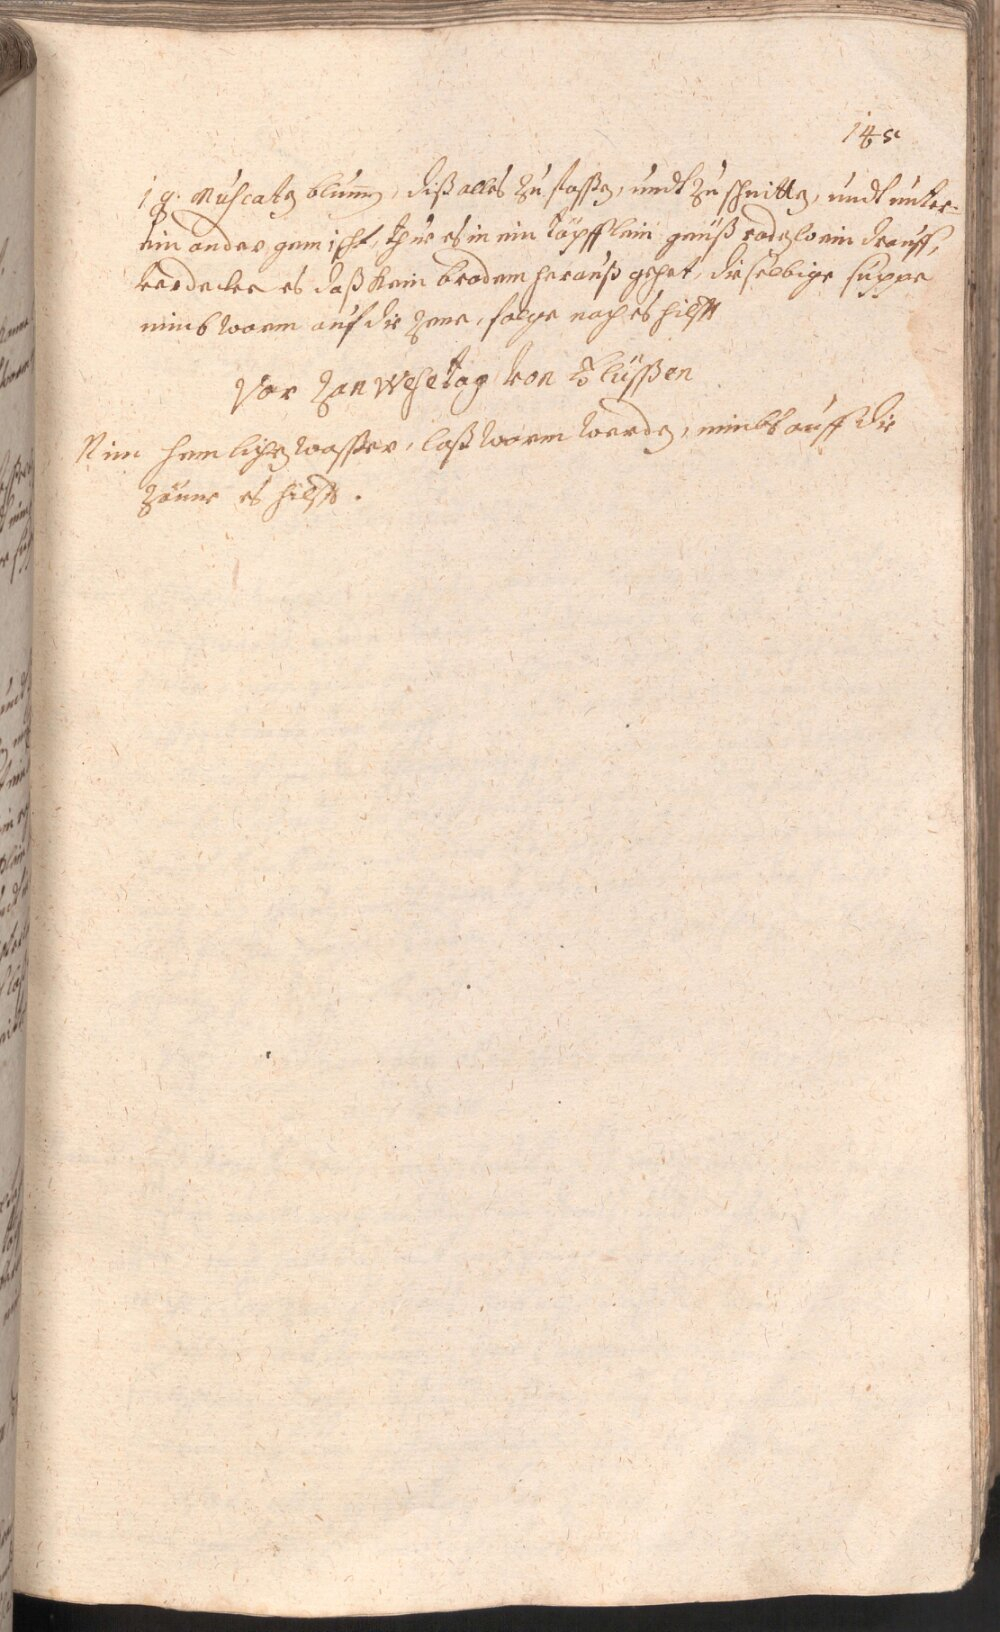 145
1 q. Muscaten blumen, diß alles zu stossen, undt zu schnitten, undt unter-
ein ander gemischt, thue es in ein töpfflein geuß rodeswein drauff,
verdecke es daß kein brodem herauß gehet, dieselbige suppe
nimb warm auf die zene, folge nach es hilfft
Vor Zan Wehetag von Flüssen
Nim heimlichen wasser, laß warm werden, nimbs auff die
Zäune es hilfft.